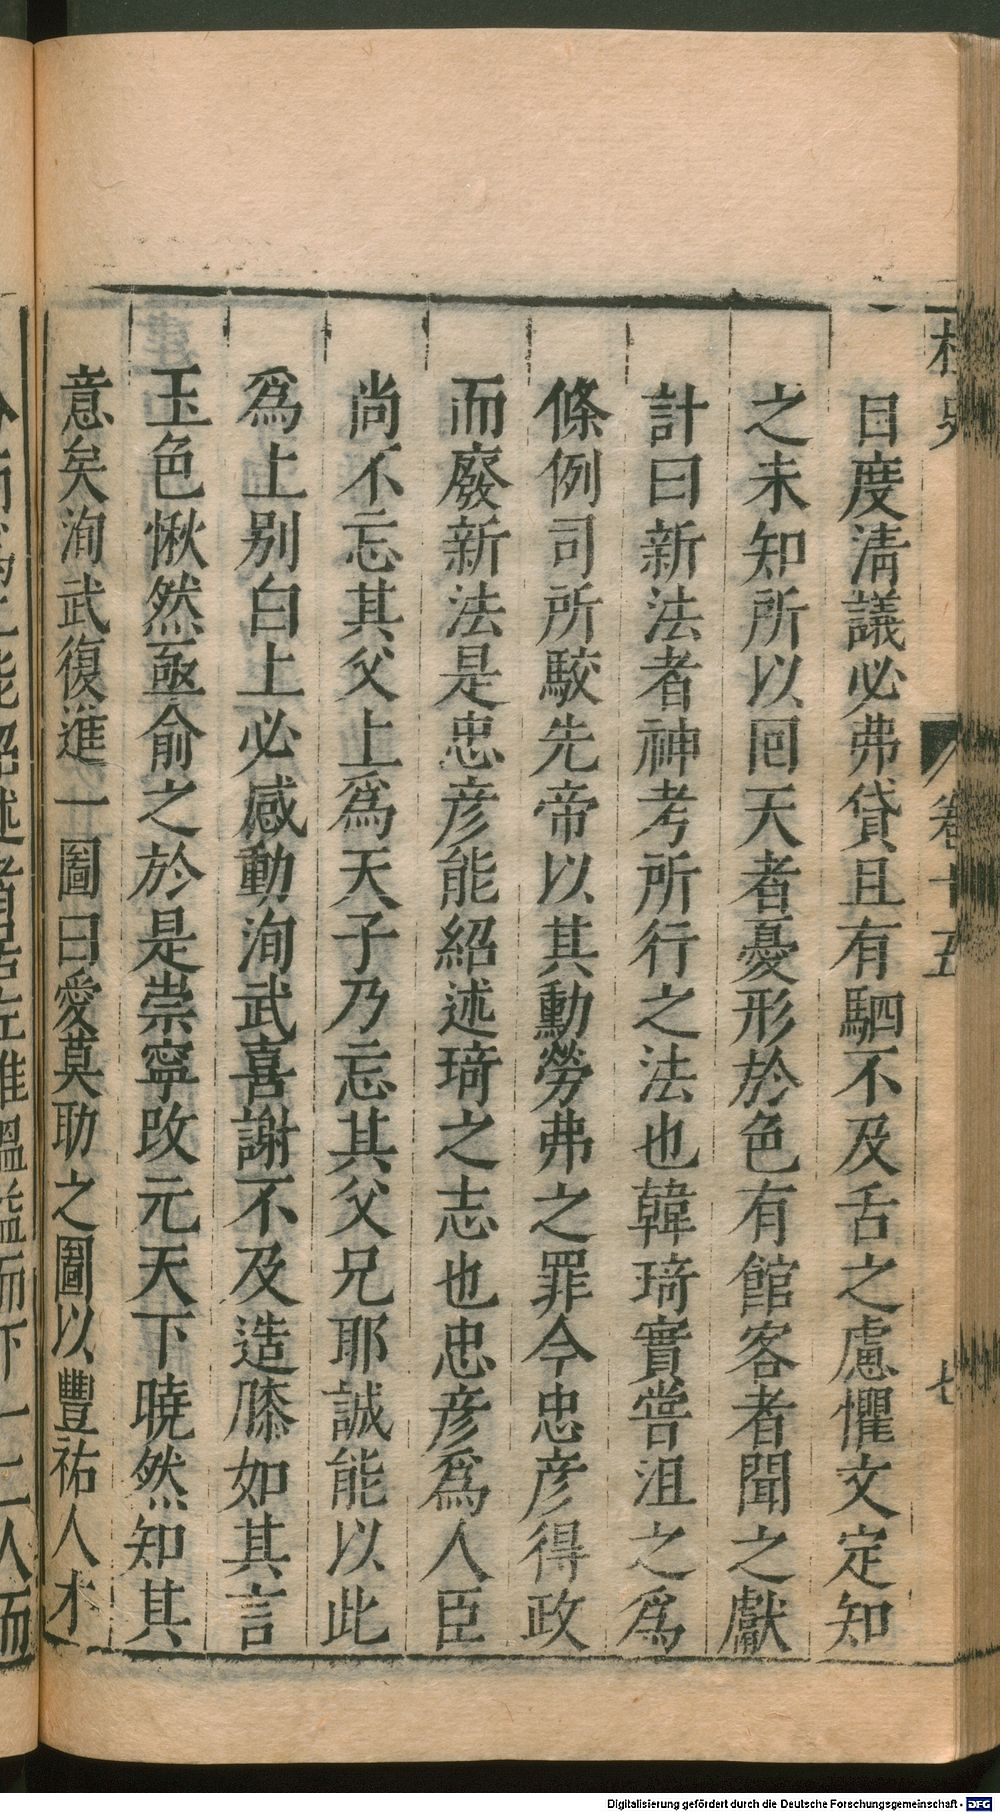 桯史
卷十五
七
日度淸議必弗貸且有駟不及舌之慮懼文定知
之未知所以回天者憂形於色有館客者聞之獻
計曰新法者神考所行之法也韓琦實嘗沮之爲
條例司所駮先帝以其勳勞弗之罪今忠彥得政
而廢新法是忠彥能紹述琦之志也忠彥爲人臣
尚不忘其父上爲天子乃忘其父兄耶誠能以此
爲上别白上必感動洵武喜謝不及造膝如其言
玉色愀然亟俞之於是崇寧改元天下曉然知其
意矣洵武復進一圖曰愛莫助之圖以豐祐人才
Digitalisierung gefördert durch die Deutsche Forschungsgemeinschaft - DFG